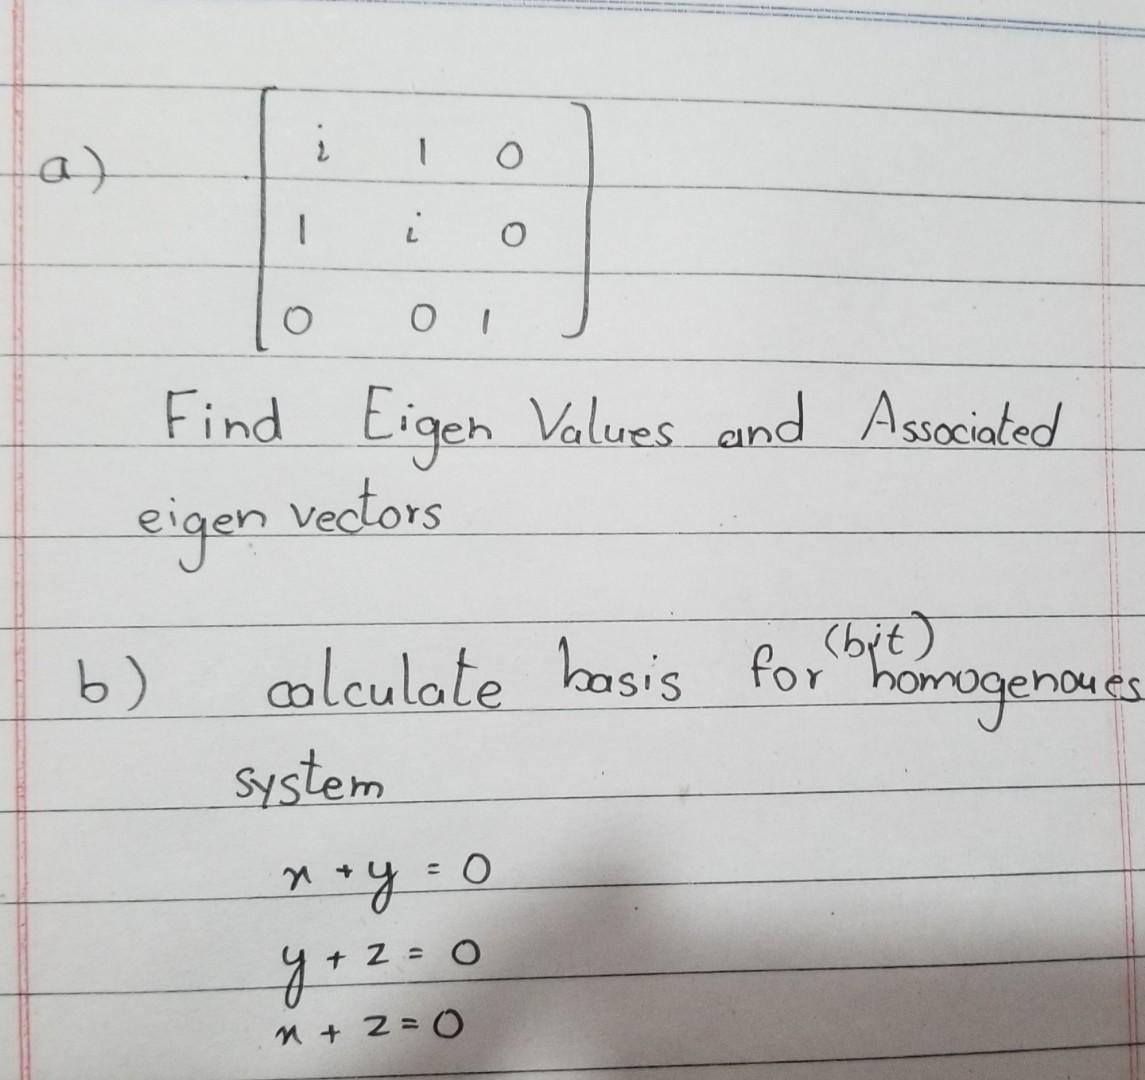 a) i 1 0
1 i 0
0 0 1
Find Eigen Values and Associated
eigen vectors
(bit)
b) calculate basis for homogenoues
system
x + y = 0
y + z = 0
x + z = 0